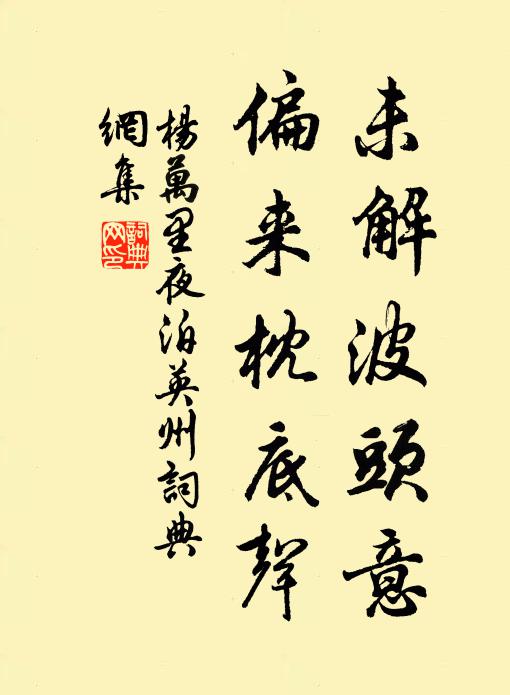 未解波頭意
偏来枕底聲
楊萬里夜泊英州詞典
網集
詞典
网印